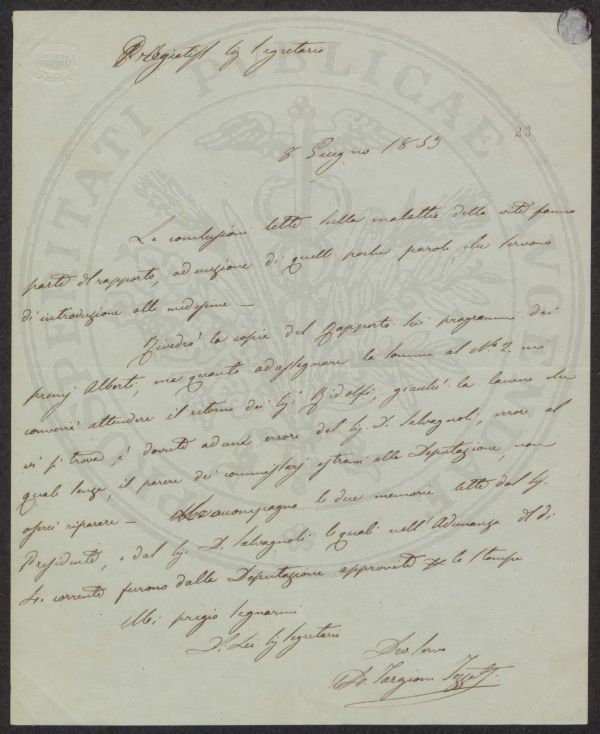 Pregiatiss Sig Segretario
23
8. Giugno 1853
Le conclusioni lette sulla malattia della vite fanno
parte del rapporto, ad eccezione di quelle poche parole, che servono
di introduzione alle medesime —
Rivedrò la copia del Rapporto sui programmi dei
premj Alberti, ma quanto ad assegnare la somma al N.o 2. mi
converrà attendere il ritorno dei Sig.i Ridolfi, giacchè la lacuna che
vi si trova è dovuta ad un errore del Sig. D. Salvagnoli, errore al
quale senza il parere dei commissarj estranei alla Deputazione, non
oserei riparare — accompagno le due memorie lette dal Sig.
Presidente, e dal Sig. D. Salvagnoli le quali nell'Adunanza del dì
corrente furono dalla Deputazione approvate per la Stampa
Mi pregio segnarmi
Di Lei Sig Segretario
Dev. Servo
D. Targioni Tozzetti
PROSPERITATI PUBLICAE AUGENDAE